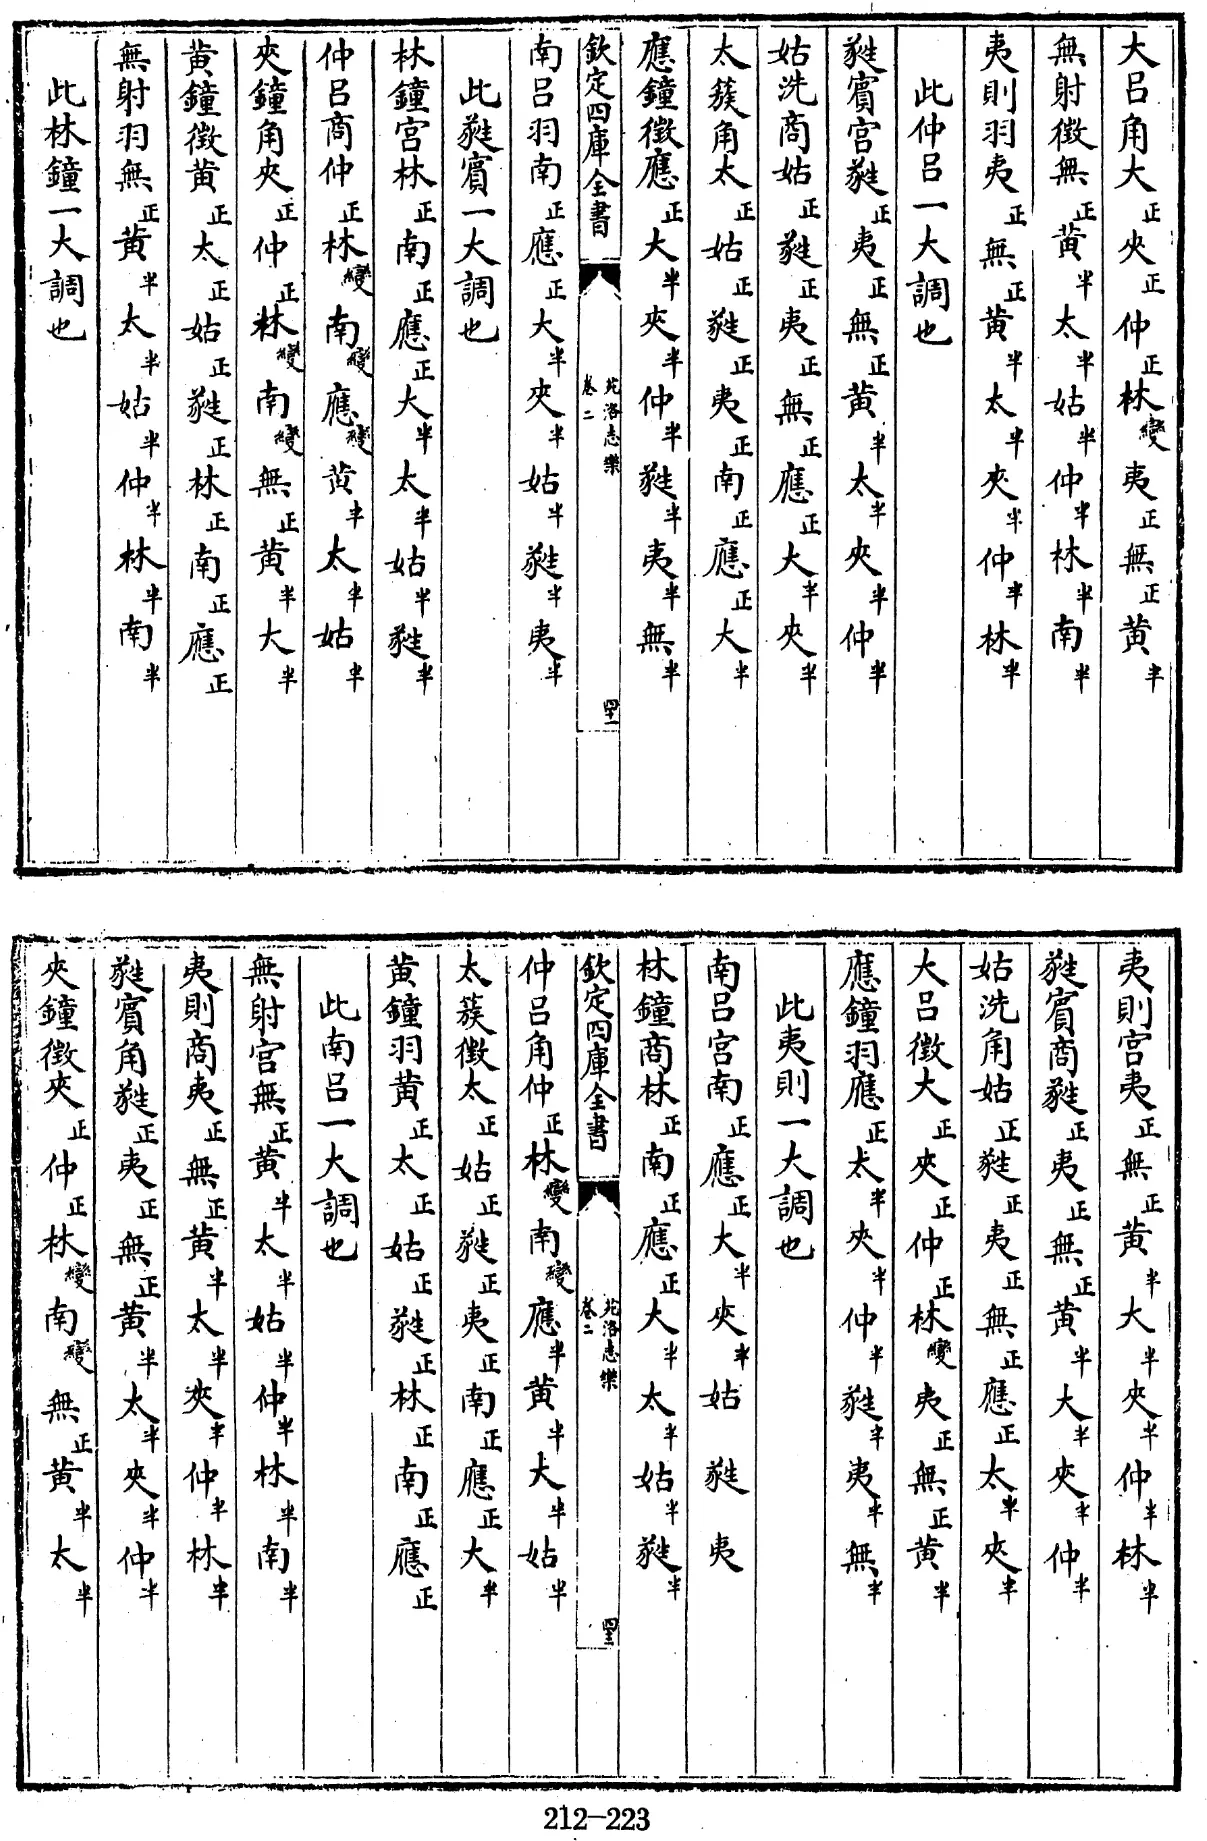 大呂角大正夾正仲正林變夷正無正黄半
無射徵無正黄半太半姑半仲半林半南半
夷則羽夷正無正黄半太半夾半仲半林半
此仲呂一大調也
蕤賓宮蕤正夷正無正黄半太半夾半仲半
姑洗商姑正蕤正夷正無正應正大半夾半
太簇角太正姑正蕤正夷正南正應正大半
應鐘徵應正大半夾半仲半蕤半夷半無半
欽定四庫全書
苑洛志樂
卷二
四十一
南呂羽南正應正大半夾半姑半蕤半夷半
此蕤賓一大調也
林鐘宮林正南正應正大半太半姑半蕤半
仲呂商仲正林變南變應變黄半太半姑半
夾鐘角夾正仲正林變南變無正黄半大半
黄鐘徵黄正太正姑正蕤正林正南正應正
無射羽無正黄半太半姑半仲半林半南半
此林鐘一大調也
夷則宮夷正無正黄半大半夾半仲半林半
蕤賓商蕤正夷正無正黄半大半夾半仲半
姑洗角姑正蕤正夷正無正應正太半夾半
大呂徵大正夾正仲正林變夷正無正黄半
應鐘羽應正太半夾半仲半蕤半夷半無半
此夷則一大調也
南呂宮南正應正大半夾半姑蕤夷
林鐘商林正南正應正大半太半姑半蕤半
欽定四庫全書
苑洛志樂
卷二
仲呂角仲正林變南變應半黄半大半姑半
太蔟徵太正姑正蕤正夷正南正應正大半
黄鐘羽黄正太正姑正蕤正林正南正應正
此南呂一大調也
無射宮無正黄半太半姑半仲半林半南半
夷則商夷正無正黄半太半夾半仲半林半
蕤賓角蕤正夷正無正黄半太半夾半仲半
夾鐘徵夾正仲正林變南變無正黄半太半
212-223